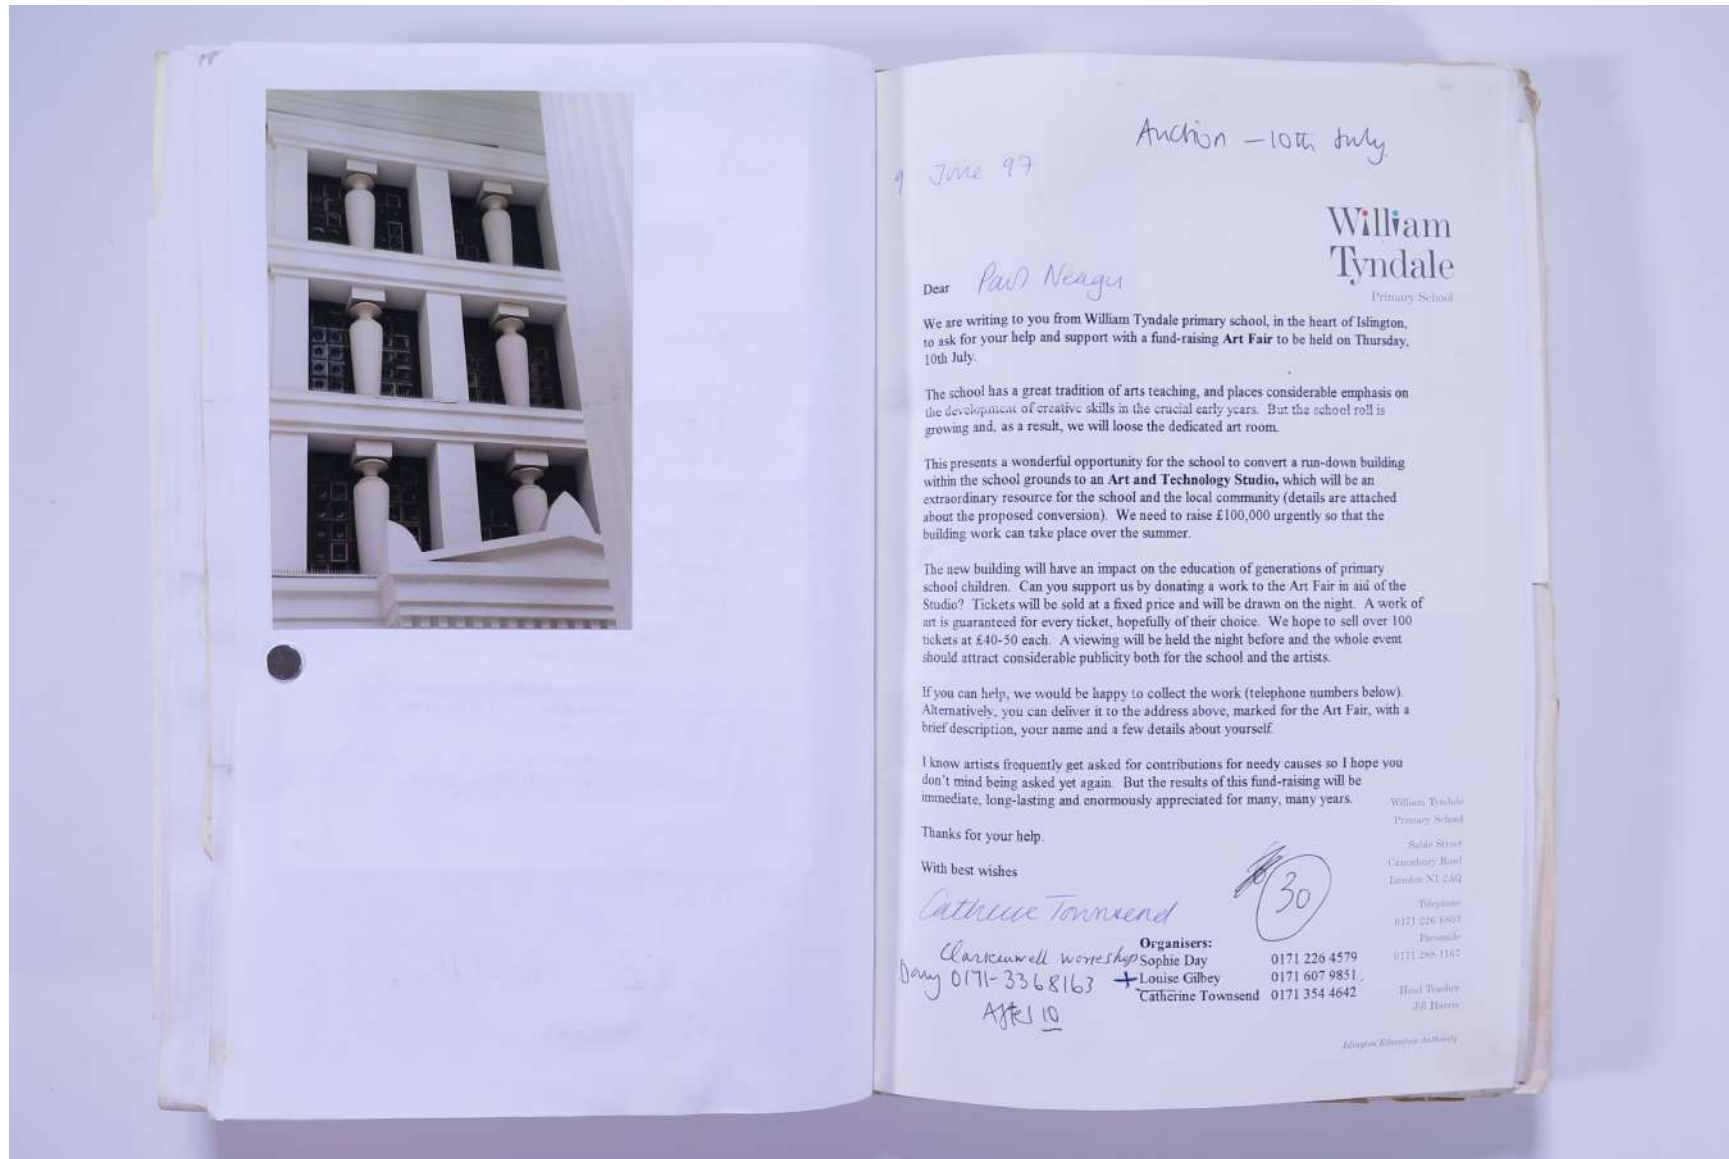 Auction - 10th July.
9 June 97
William
Tyndale
Primary School
Dear Paul Neagu
We are writing to you from William Tyndale primary school, in the heart of Islington,
to ask for your help and support with a fund-raising Art Fair to be held on Thursday,
10th July.
The school has a great tradition of arts teaching, and places considerable emphasis on
the development of creative skills in the crucial early years. But the school roll is
growing and, as a result, we will loose the dedicated art room.
This presents a wonderful opportunity for the school to convert a run-down building
within the school grounds to an Art and Technology Studio, which will be an
extraordinary resource for the school and the local community (details are attached
about the proposed conversion). We need to raise £100,000 urgently so that the
building work can take place over the summer.
The new building will have an impact on the education of generations of primary
school children. Can you support us by donating a work to the Art Fair in aid of the
Studio? Tickets will be sold at a fixed price and will be drawn on the night. A work of
art is guaranteed for every ticket, hopefully of their choice. We hope to sell over 100
tickets at £40-50 each. A viewing will be held the night before and the whole event
should attract considerable publicity both for the school and the artists.
If you can help, we would be happy to collect the work (telephone numbers below).
Alternatively, you can deliver it to the address above, marked for the Art Fair, with a
brief description, your name and a few details about yourself.
I know artists frequently get asked for contributions for needy causes so I hope you
don't mind being asked yet again. But the results of this fund-raising will be
immediate, long-lasting and enormously appreciated for many, many years.
Thanks for your help.
With best wishes
Catherine Townsend
30
Organisers:
Sophie Day 0171 226 4579
+ Louise Gilbey 0171 607 9851
Catherine Townsend 0171 354 4642
Clarkenwell
0171-3368163
After 10
William Tyndale
Primary School
Sable Street
Canonbury Road
London N1 2AQ
Telephone
0171 226 6803
Facsimile
0171 288 1167
Head Teacher
Jill Harris
Islington Education Authority